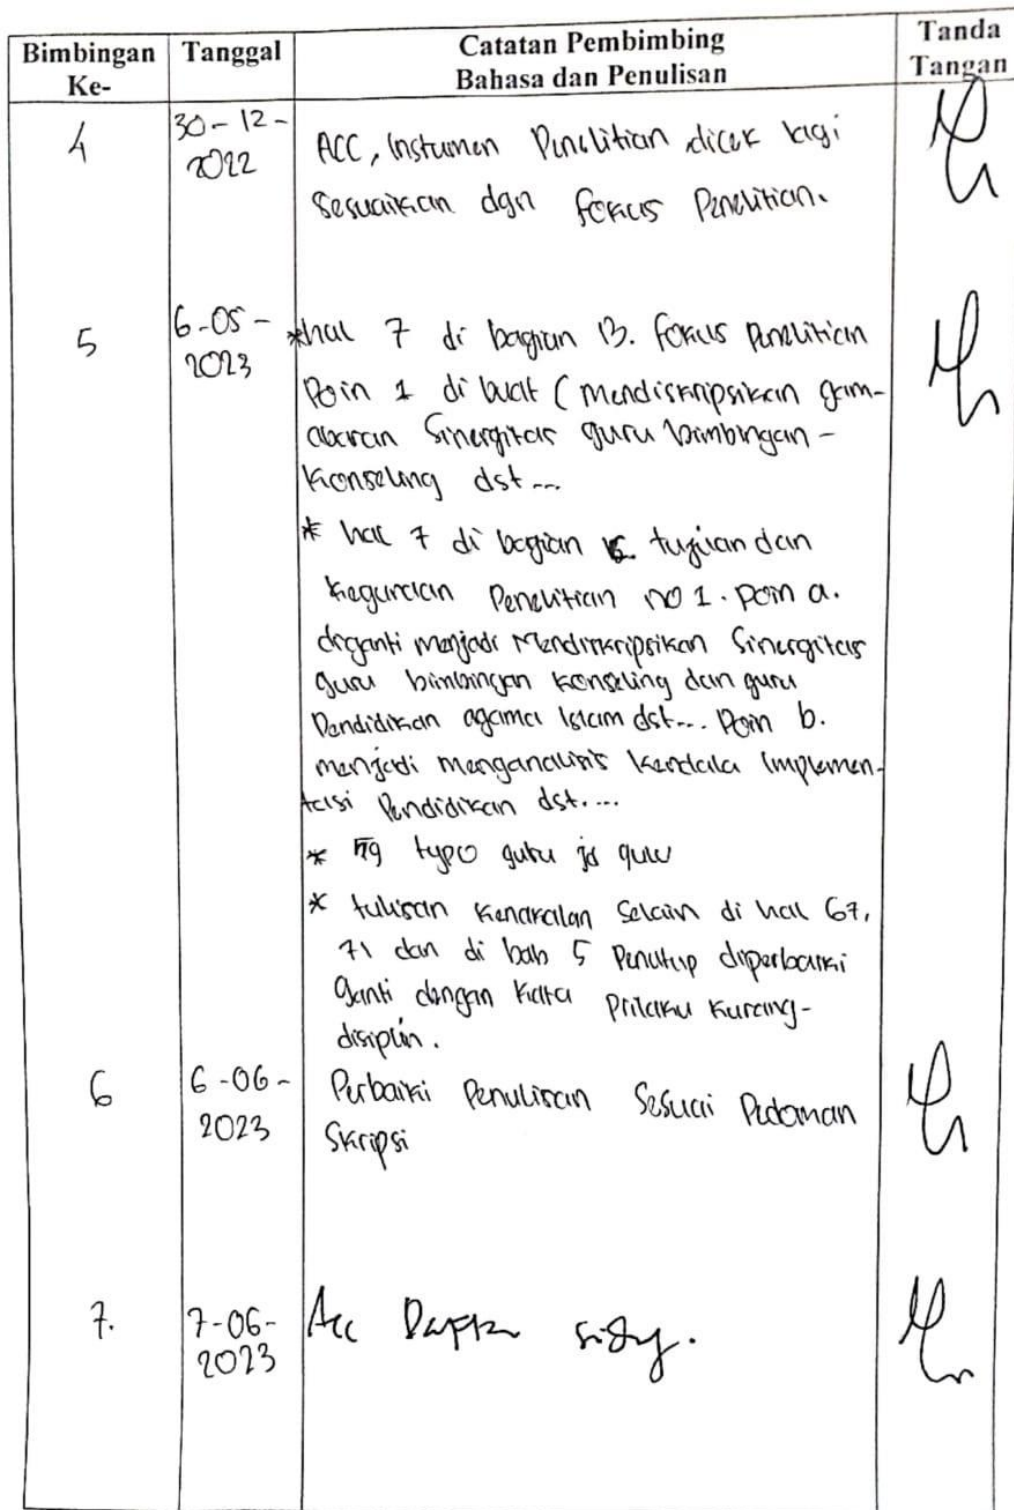 Bimbingan Ke-
Tanggal
Catatan Pembimbing
Bahasa dan Penulisan
Tanda Tangan
4
30-12-
2022
ACC, Instumen Penelitian dicek lagi
Sesuaikan dgn fokus Penelitian.
5
6-05-
2023
*hal 7 di bagian B. fokus Penelitian
Poin 1 di buat (mendiskripsikan gam-
abaran Sinergitas guru bimbingan-
Konseling dst...
* hal 7 di bagian tujuan dan
Kegunaan Penelitian no 1. poin a.
diganti menjadi Mendiskripsikan Sinergitas
guru bimbingan konseling dan guru
Pendidikan agama Islam dst... Poin b.
menjadi menganalisis kendala implemen-
tasi Pendidikan dst....
* typo guru jd
* tulisan kenakalan Selain di hal 67,
71 dan di bab 5 Penutup diperbaiki
Ganti dengan kata Prilaku kurang-
disiplin.
6
6-06-
2023
Perbaiki Penulisan Sesuai Pedoman
Skripsi
7.
7-06-
2023
Acc Daftar sidang.